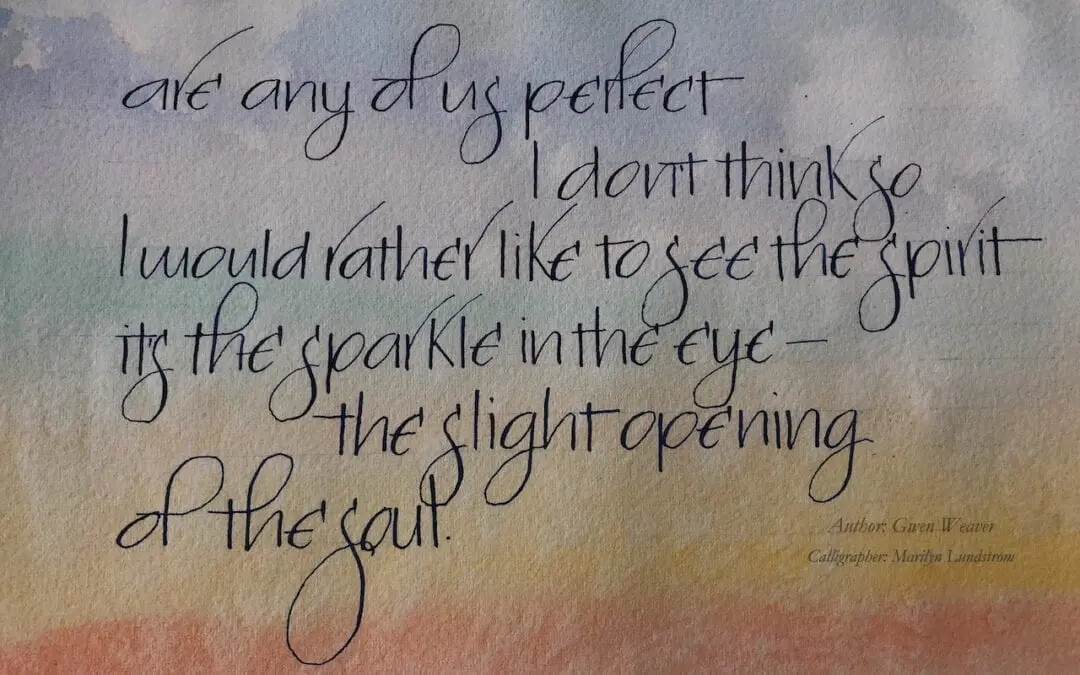 are any of us perfect
I don't think so
I would rather like to see the spirit
it's the sparkle in the eye —
the slight opening
of the soul.
Author: Gwen Weaver
Calligrapher: Marilyn Lundstrom